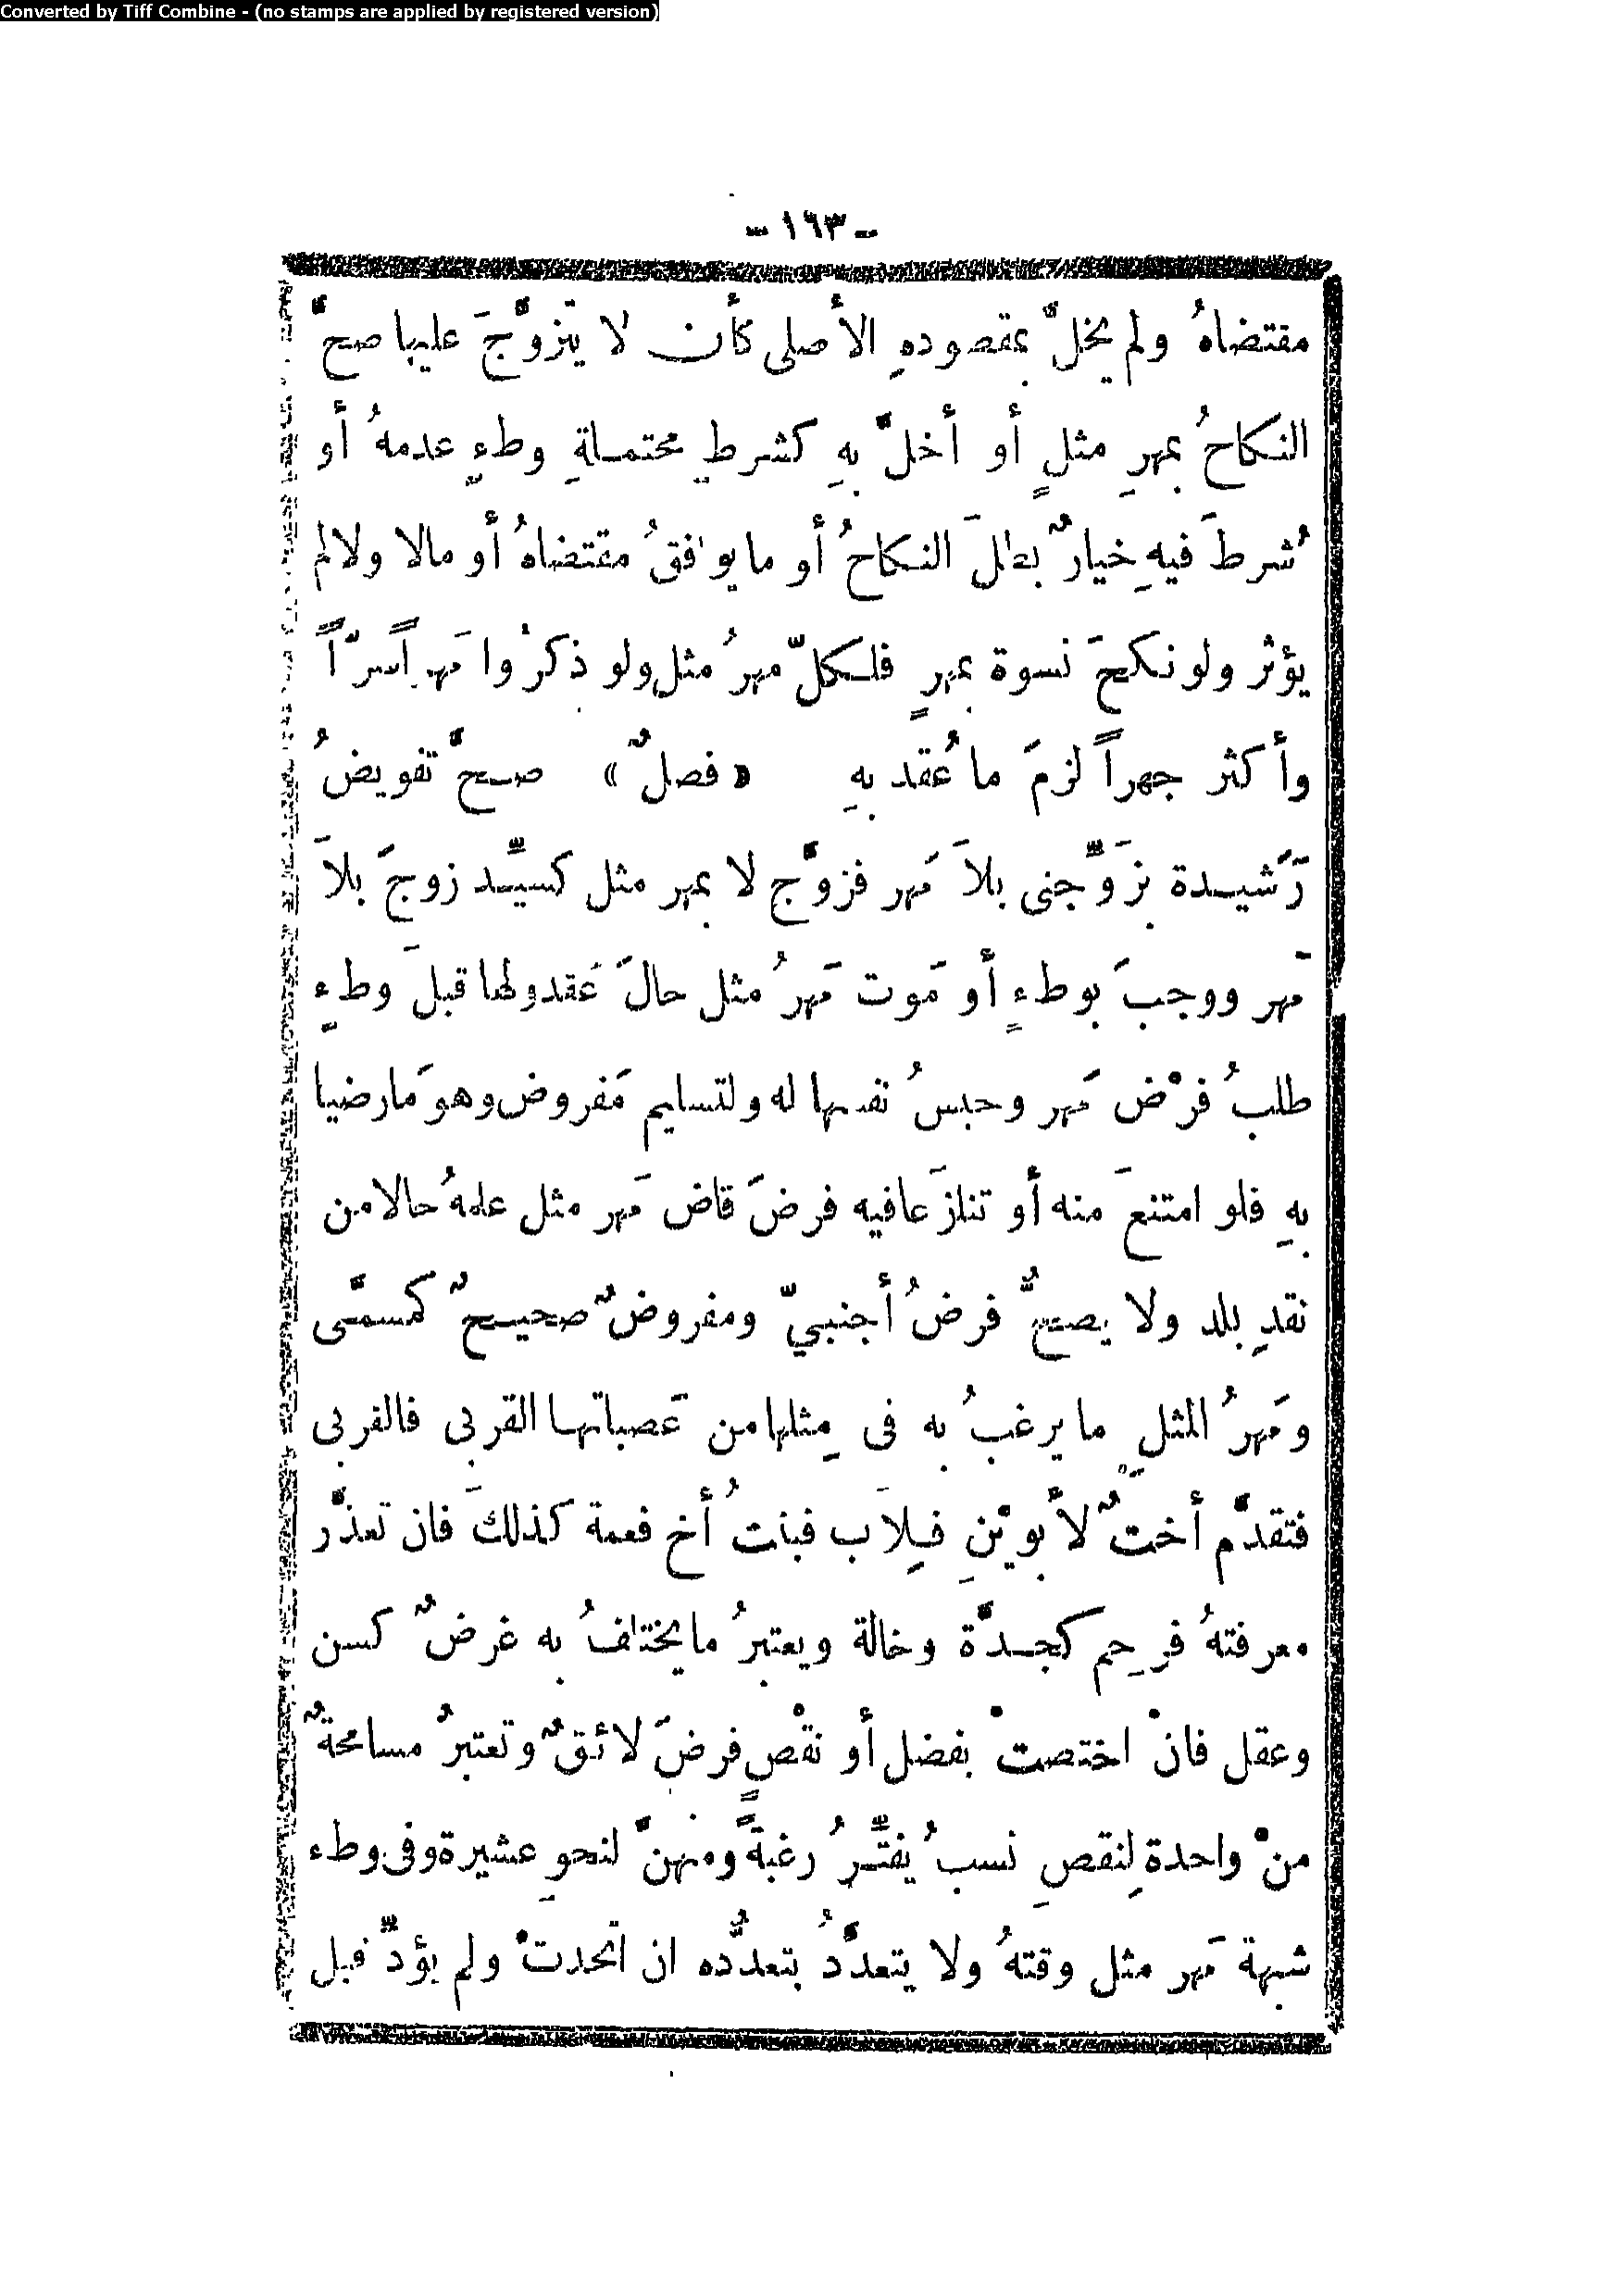 Converted by Tiff Combine - (no stamps are applied by registered version)
- ١٦٣ -
مقتضاهُ ولم يخلَّ بمقصودهِ الأصلى كأن لا يتزوَّجَ عليها صحَّ
النكاحُ بمهرِ مثلٍ أو أخلَّ بهِ كشرطِ محتملةِ وطءٍ عدمهُ أو
شُرطَ فيهِ خيارٌ بطلَ النكاحُ أو ما يوافقُ مقتضاهُ أو مالا ولا لم
يؤثر ولو نكحَ نسوة بمهرٍ فلكلّ مهرُ مثل ولو ذكرُوا مَهراً سرّاً
وأكثر جهراً لزمَ ما عُقد بهِ « فصلٌ » صحَّ تفويضُ
رَشيدة بزَوِّجنى بلاَ مَهر فزوَّج لا بمهر مثل كسيِّد زوجَ بلاَ
مَهر ووجبَ بوطءٍ أو مَوت مَهرُ مثل حالَ عَقد ولها قبلَ وطءٍ
طلبُ فرْض مَهر وحبسُ نفسها له ولتسليم مَفروض وهو مَا رضيا
بهِ فلو امتنعَ منه أو تنازَعا فيه فرضَ قاض مَهر مثل علمهُ حالا من
نقدِ بلد ولا يصحُّ فرضُ أجنبيّ ومفروضٌ صحيحٌ كمسمَّى
ومَهرُ المثلِ ما يرغبُ به فى مِثلها من عَصباتها القربى فالقربى
فتقدَّم أختٌ لأبويْنِ فلِأب فبنتُ أخ فعمة كذلكَ فان تعذَّر
معرفتهُ فرحِم كجدَّة وخالة ويعتبرُ ما يختلفُ به غرضٌ كسن
وعقل فانْ اختصتْ بفضل أو نقْصٍ فرضَ لائقٌ وتعتبرُ مسامحةٌ
منْ واحدة لِنقصِ نسبُ يُفتِّرُ رغبةً ومنهنَّ لنحوِ عشيرة وفى وطء
شبهة مَهر مثل وقتهُ ولا يتعدَّدُ بتعدُّده ان اتحدتْ ولم يؤدِّ قبل